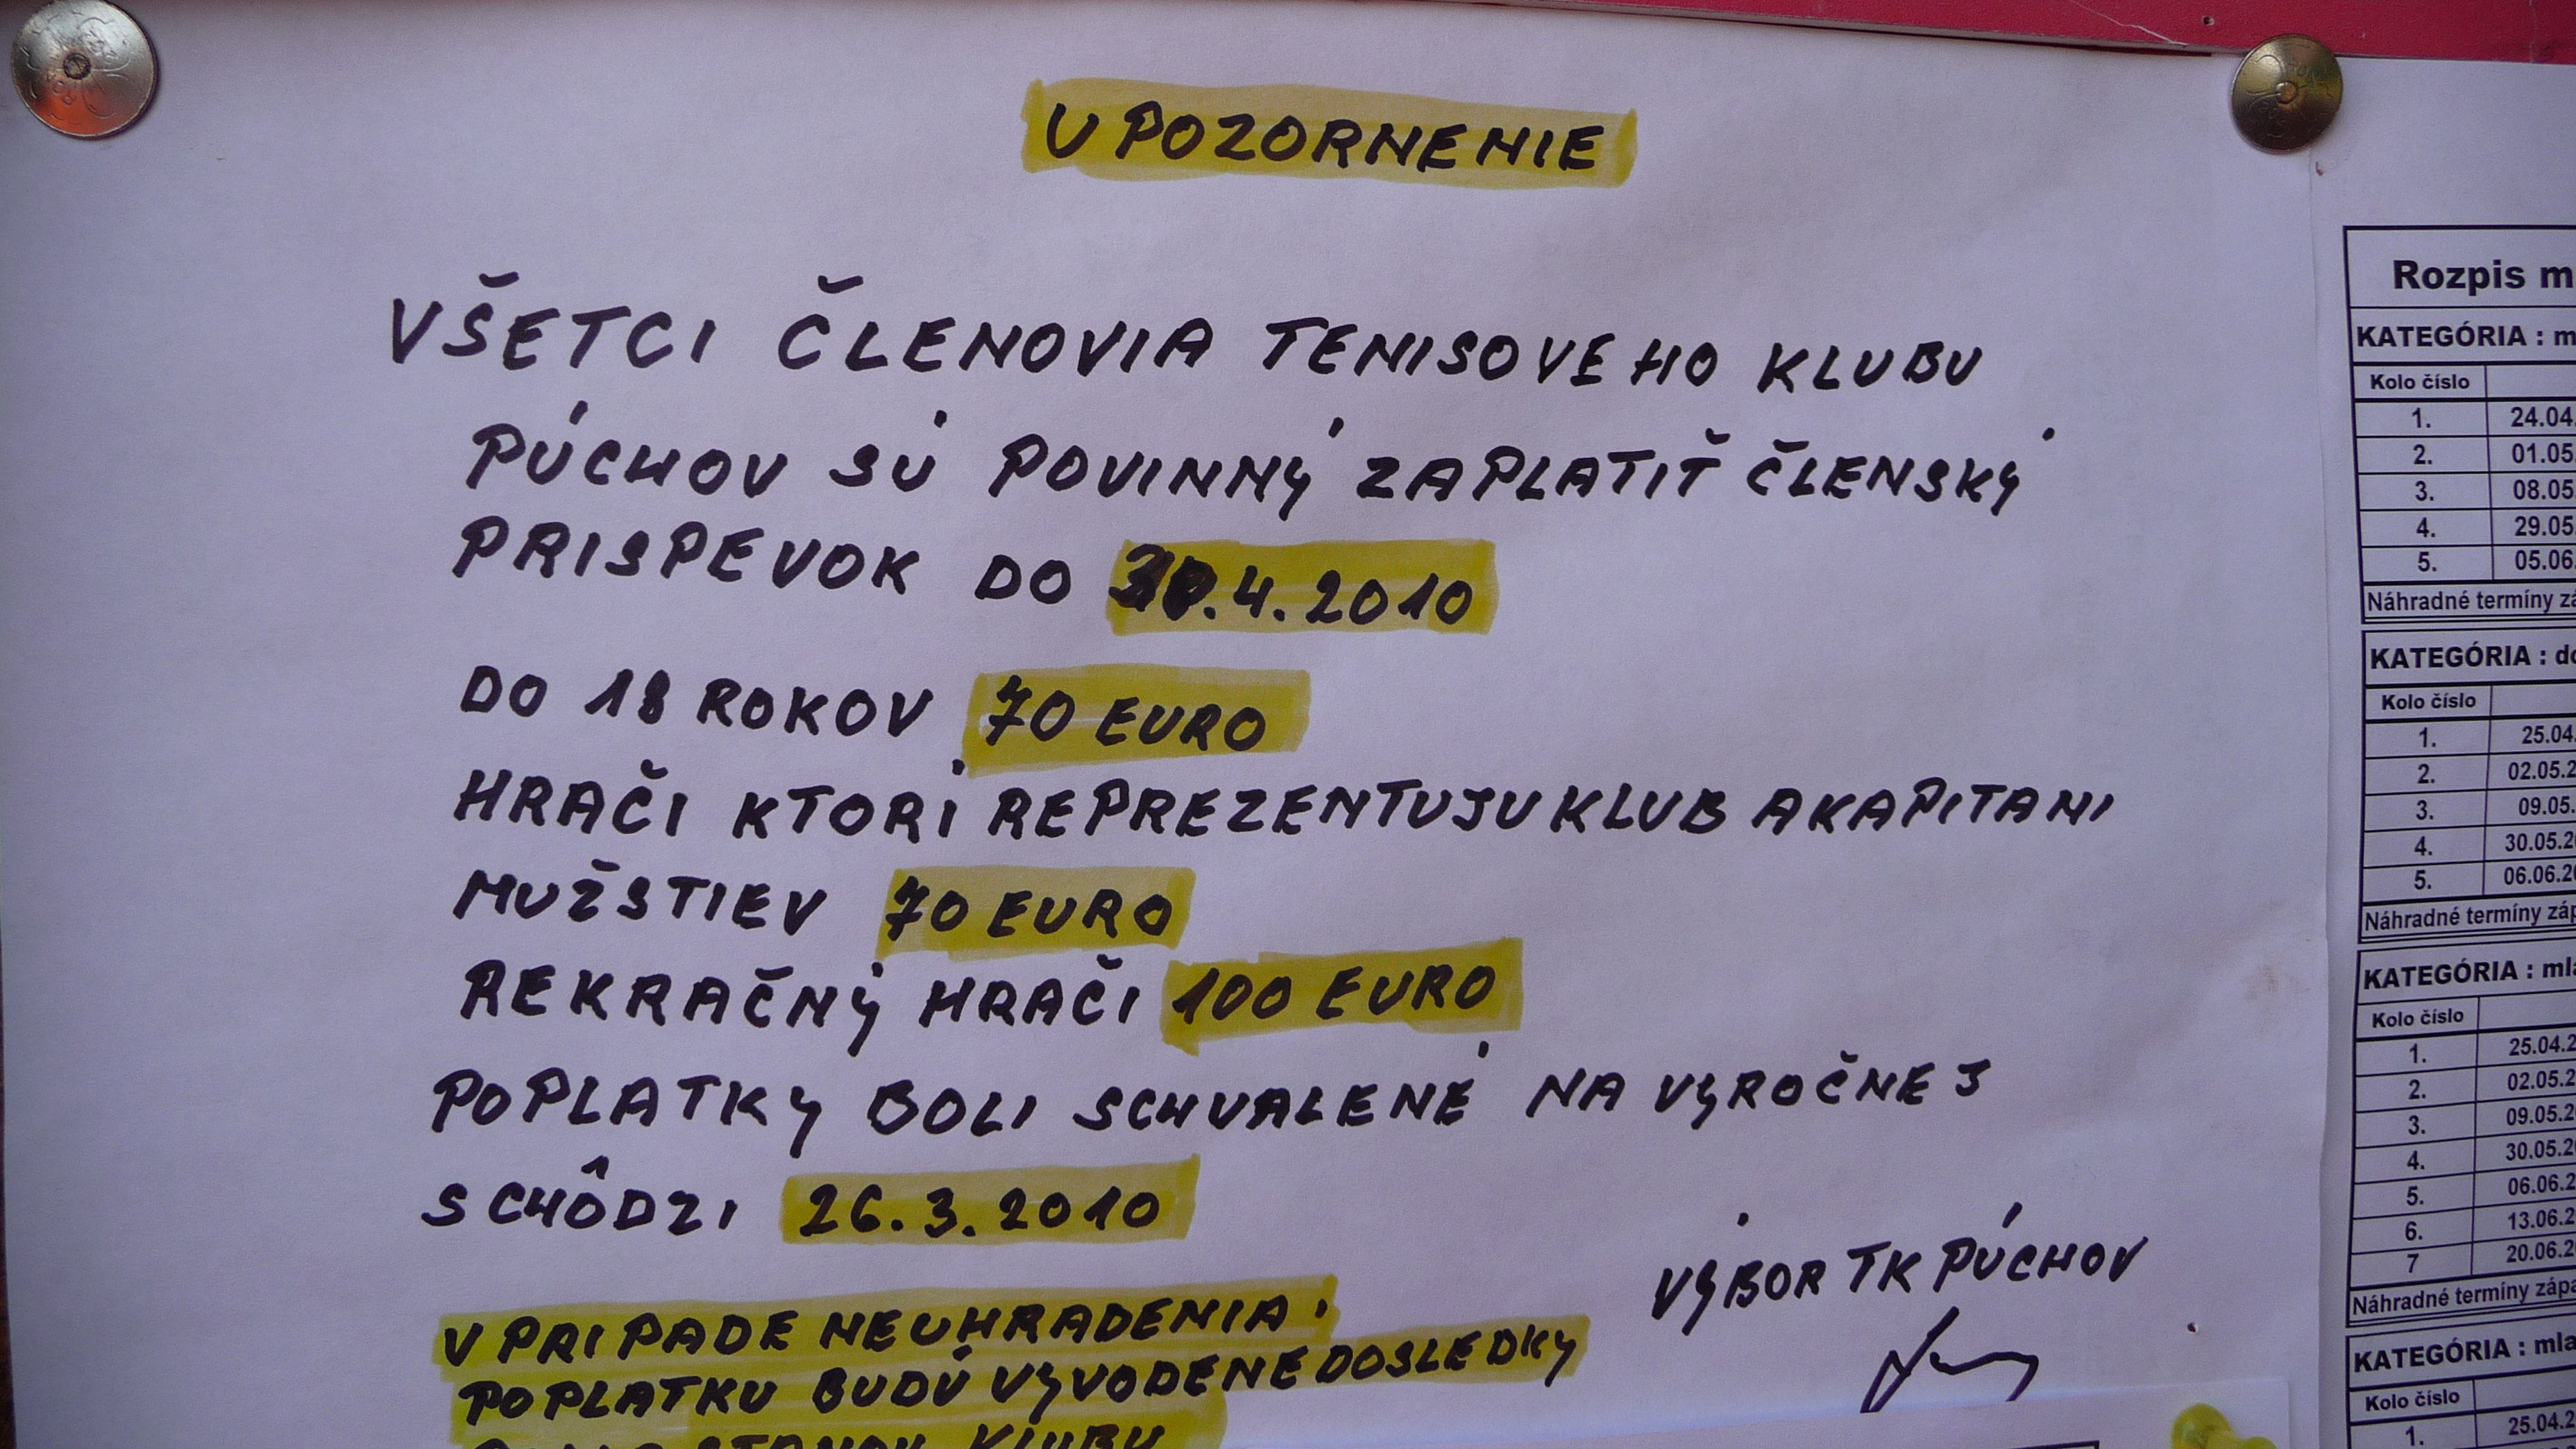 UPOZORNENIE
VŠETCI ČLENOVIA TENISOVEHO KLUBU
PÚCHOV SÚ POVINNÝ ZAPLATIŤ ČLENSKÝ
PRISPEVOK DO 30.4.2010
DO 18 ROKOV 70 EURO
HRAČI KTORÍ REPREZENTUJU KLUB A KAPITANI
MUŽSTIEV 70 EURO
REKRAČNÝ HRAČI 100 EURO
POPLATKY BOLI SCHVALENÉ NA VYROČNEJ
SCHÔDZI 26.3.2010
VÝBOR TK PÚCHOV
V PRIPADE NEUHRADENIA
POPLATKU BUDÚ VYVODENE DOSLEDKY
STANOV KLUBU
Rozpis m
KATEGÓRIA : m
Kolo číslo
1. 24.04.
2. 01.05.
3. 08.05
4. 29.05
5. 05.06.
Náhradné termíny zá
KATEGÓRIA : do
Kolo číslo
1. 25.04.
2. 02.05.2
3. 09.05.
4. 30.05.2
5. 06.06.2
Náhradné termíny záp
KATEGÓRIA : mla
Kolo číslo
1. 25.04.2
2. 02.05.2
3. 09.05.2
4. 30.05.2
5. 06.06.2
6. 13.06.2
7 20.06.2
Náhradné termíny zápa
KATEGÓRIA : mla
Kolo číslo
1. 25.04.2